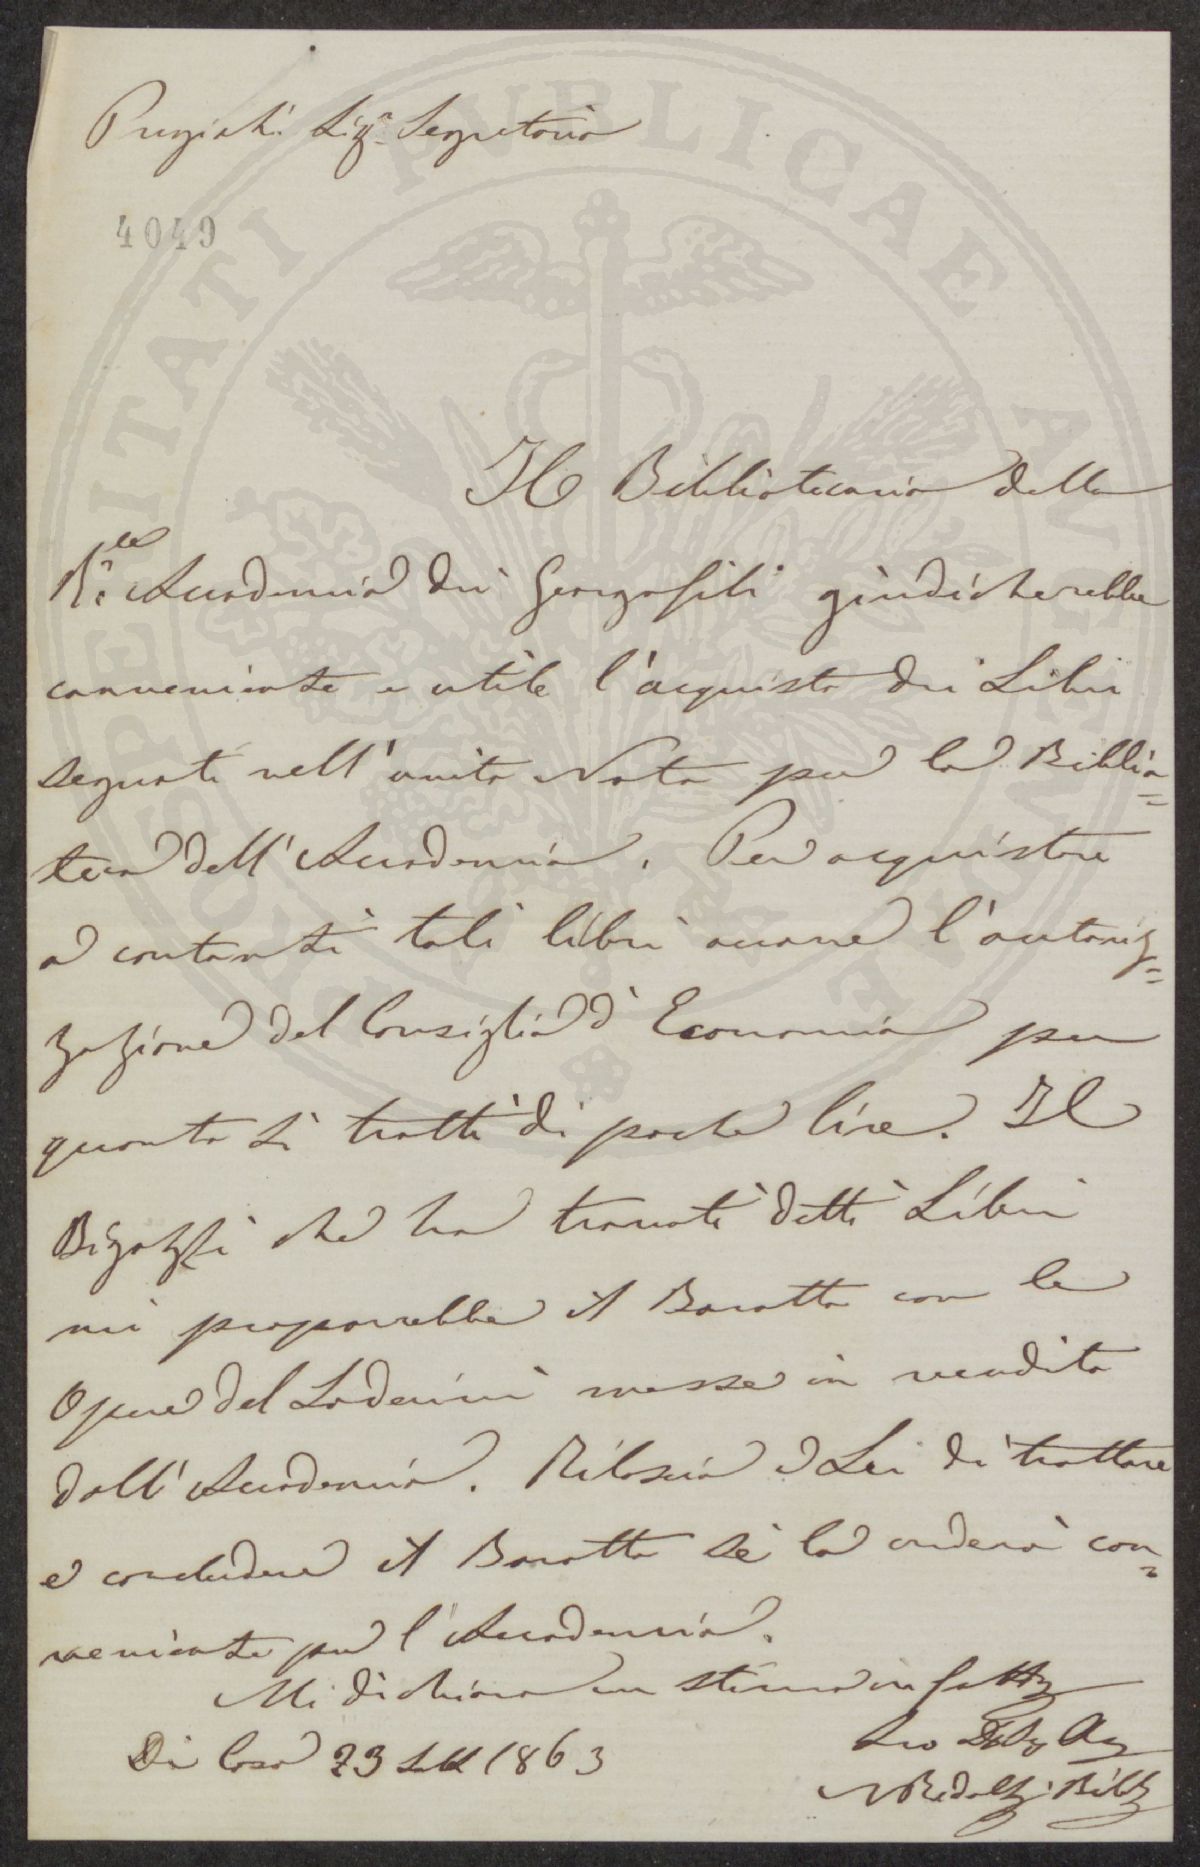 Pregiat. Sigr. Segretario
4049
PROSPERITATI PUBLICAE AUGENDAE
Il Bibliotecario della
R.le Accademia dei Georgofili giudicherebbe
conveniente e utile l'acquisto dei Libri
segnati nell'unita Nota per la Biblio=
teca dell'Accademia. Per acquistare
a contanti tali libri occorre l'autoriz=
zazione del Consiglio d'Economia per
quanto si tratti di poche lire. Il
Bigazzi che ha trovati detti Libri
mi proporrebbe il Baratto con le
Opere del Loderini messe in vendita
dall'Accademia. Rilascio a Lei di trattare
e concludere il Baratto se lo crederà con=
veniente per l'Accademia.
Mi dichiaro con stima
Di Casa 23 Sett 1863
Suo